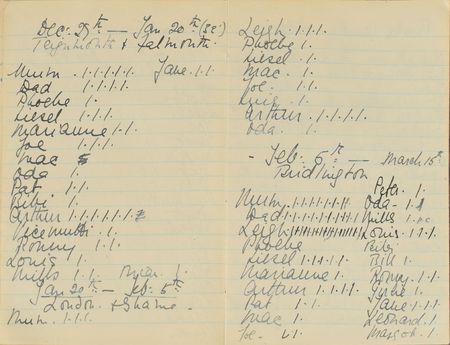 Dec. 29th — Jan 20th (32)
Teignmouth & Falmouth.
Mum. 1.1.1.1.1. Jane. 1.1
Dad 1.1.1.1.
Phoebe 1.
Liesel 1.1.1.
Marianne 1.1.
Joe 1.1.1.
Mac
Oda 1.
Pat. 1.1.
Bibi 1.
Arthur 1.1.1.1.1.1.
1.
Ronny 1.1.
Louis 1.
Mills 1.1. 1.
Jan 20th — Feb. 5th
London. & Shame.
Mum. 1.1.1.
Leigh. 1.1.1.
Phoebe 1.
Liesel 1.
Mac. 1.
Joe. 1.1.
1.
Arthur. 1.1.1.1.
Oda. 1.
- Feb. 5th — March 15th
Bridlington
Peter. 1.
Mum. 1.1.1.1.1.1.1. Oda. 1.
Dad. 1.1.1.1.1.1.1.1 Mills 1.
Leigh Louis. 1.1.1.
Phoebe Bibi
Liesel 1.1.1.1. Bill 1.
Marianne 1. Ronny. 1.1.
Arthur 1.1.1.1. 1.
Pat 1.1. Jane 1.1.
Mac 1. Leonard 1.
Joe. 1. Margot. 1.